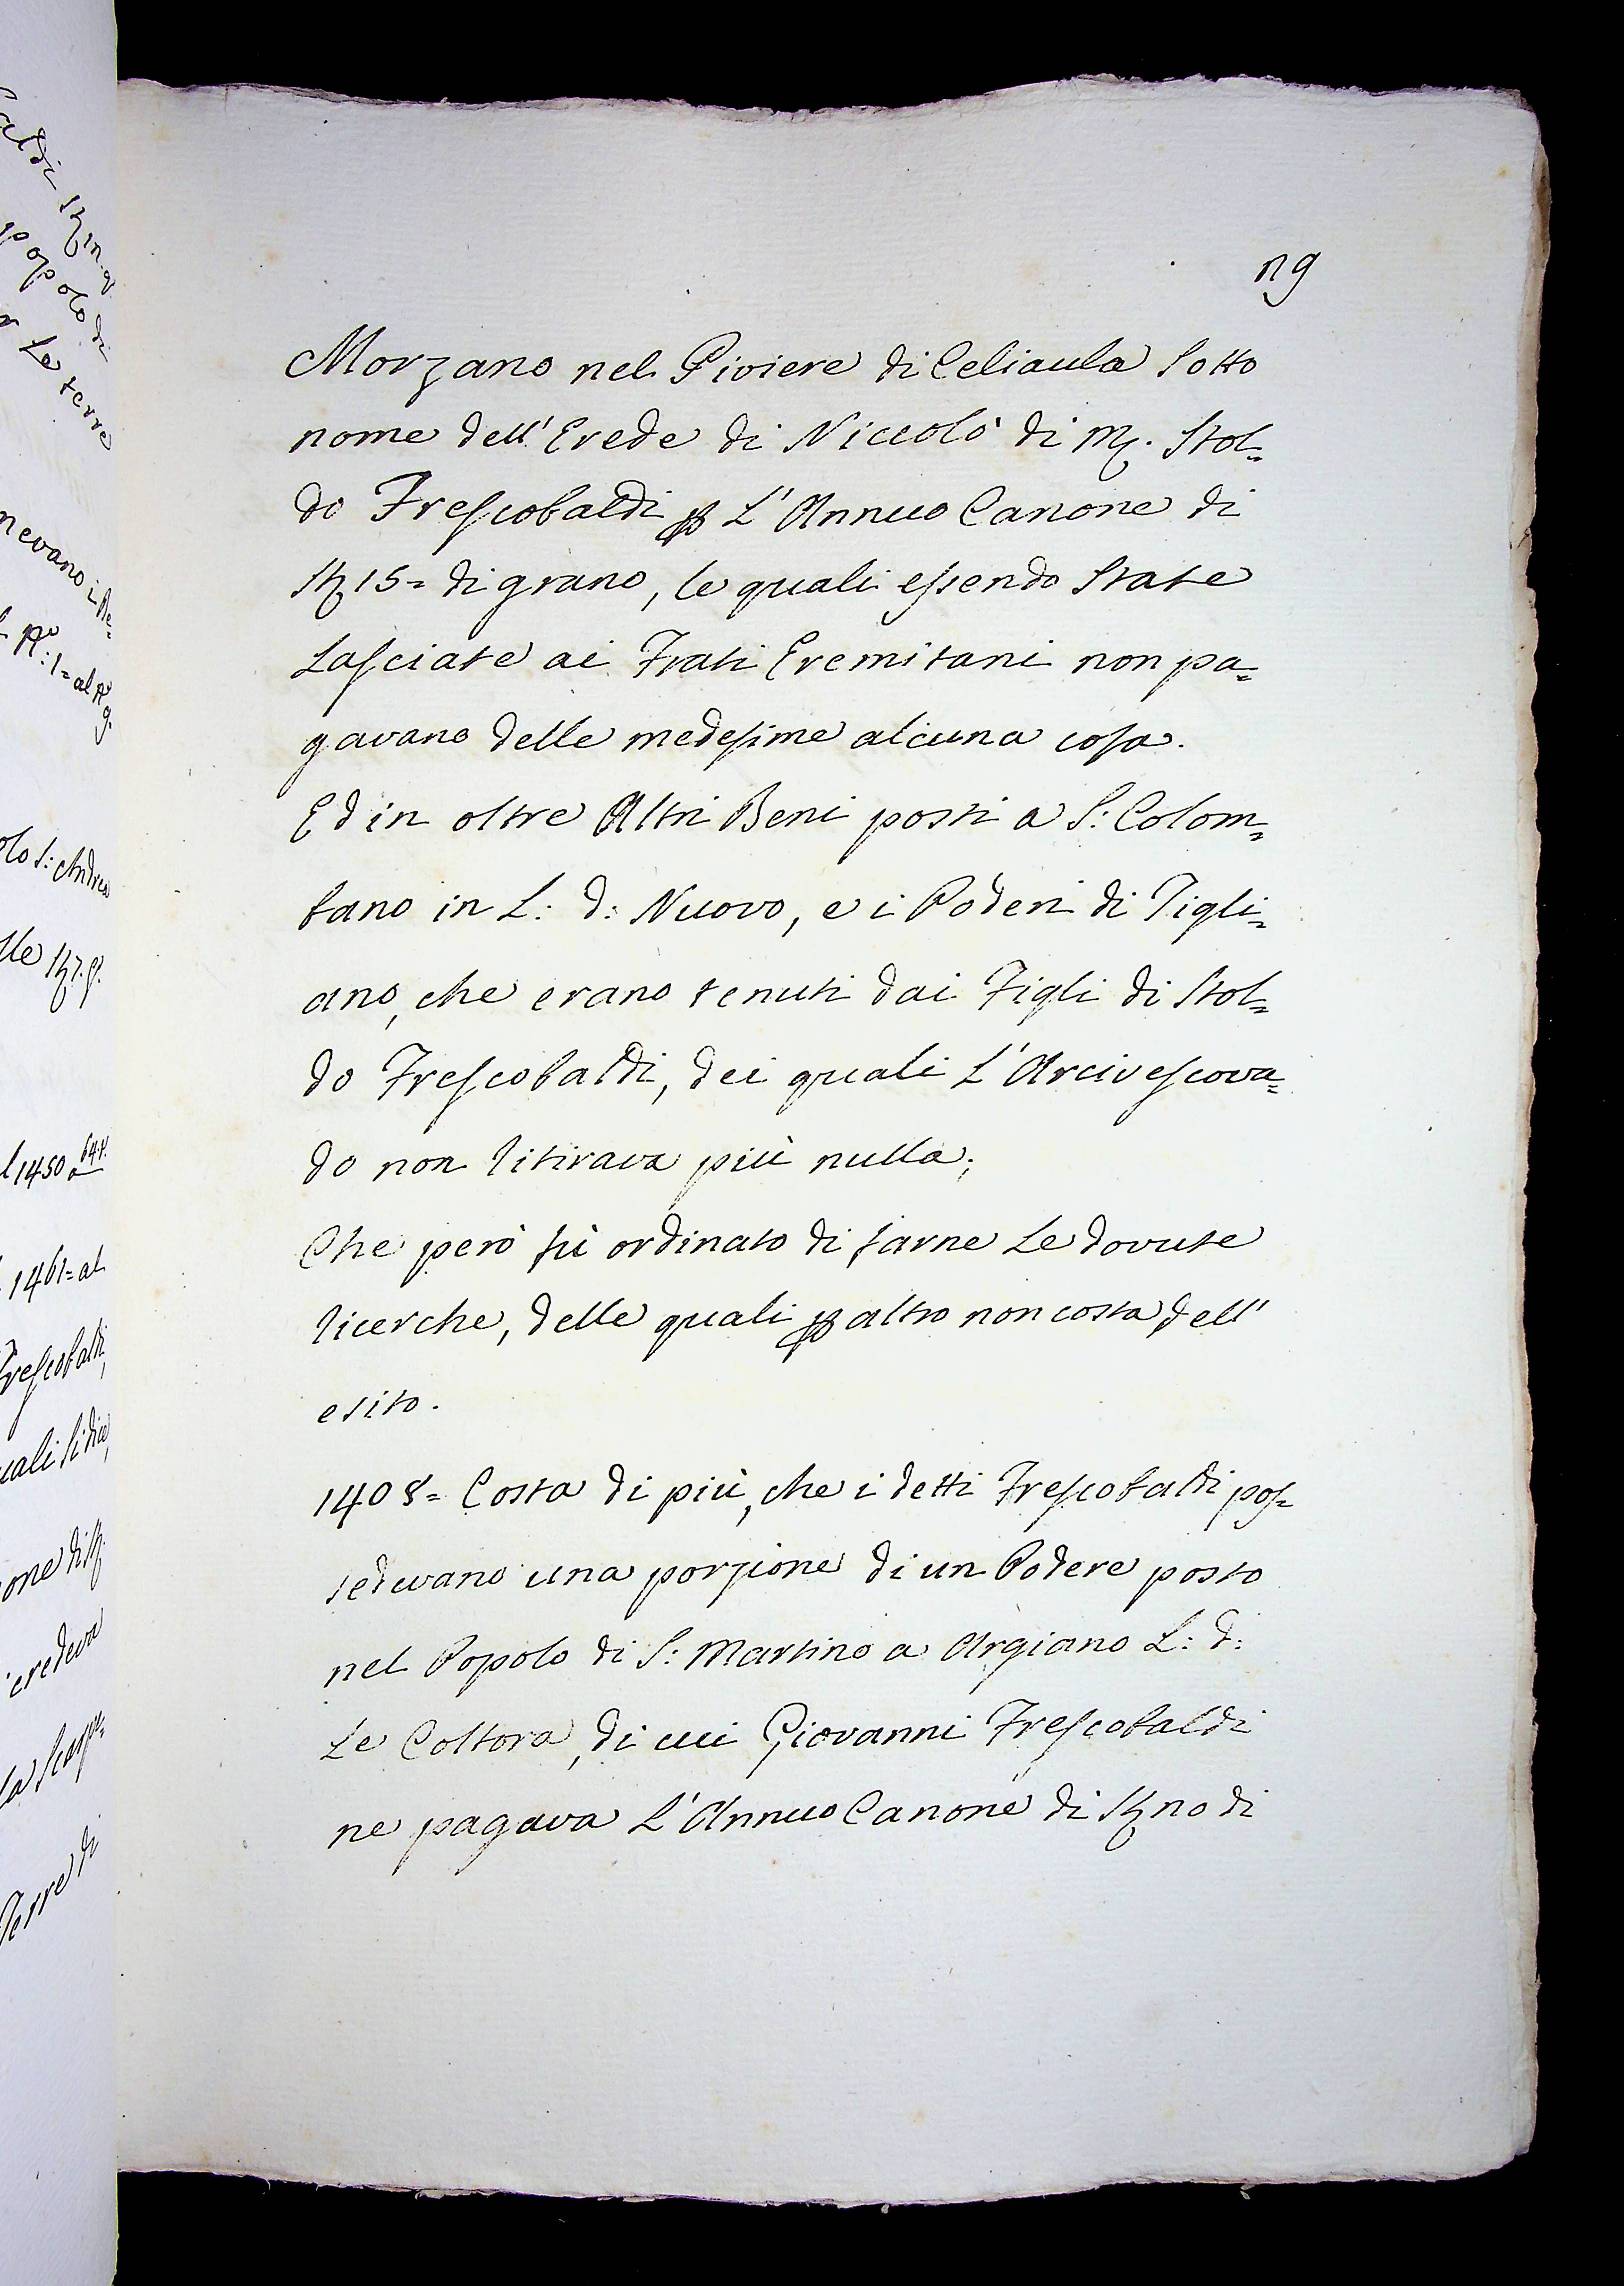 Morzano nel Piviere di Celiaula Sotto
nome dell'Erede di Niccolò di M. Stol=
do Frescobaldi p L'Annuo Canone di
15= di grano, le quali essendo State
Lasciate ai Frati Eremitani non pa=
gavano delle medesime alcuna cosa.
Ed in oltre Altri Beni posti a S: Colom=
bano in L: d: Nuovo, e i Poderi di Tigli=
ano, che erano tenuti dai Figli di Stol=
do Frescobaldi, dei quali L'Arcivescova=
do non ritirava più nulla;
Che però fù ordinato di farne Le dovute
ricerche, delle quali p altro non costa dell'
esito.
1408= Costa di più, che i detti Frescobaldi pos=
sedevano una porzione di un Podere posto
nel Popolo di S: Martino a Argiano L: d:
Le Coltora, di cui Giovanni Frescobaldi
ne pagava L'Annuo Canone di no di
popolo di
Le terre
nevano i
l 1450
1461= al
Frescobaldi,
uali si dice,
credeva
Terre di